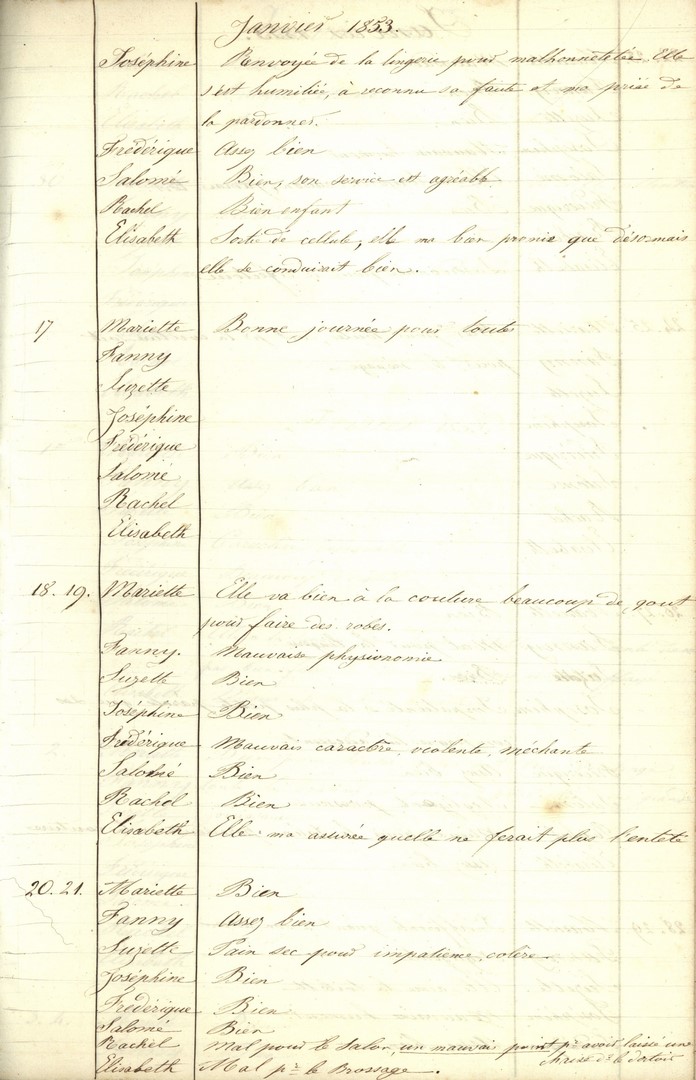 Janvier 1853.
Joséphine Renvoyée de la lingerie pour malhonnêteté. Elle
s'est humiliée, à reconnu sa faute et ma priée de
la pardonner.
Frédérique Assez bien
Salomé Bien, son service est agréable
Rachel Bien enfant
Elisabeth Sortie de cellule, elle ma bien promis que désormais
elle se conduirait bien.
17 Mariette Bonne journée pour toutes
Fanny
Suzette
Joséphine
Frédérique
Salomé
Rachel
Elisabeth
18. 19. Mariette Elle va bien à la couture beaucoup de gout
pour faire des robes.
Fanny. Mauvaise physionomie
Suzette Bien
Joséphine Bien
Frédérique Mauvais caractre, violente, méchante
Salomé Bien
Rachel Bien
Elisabeth Elle ma assurée quelle ne ferait plus l'enteté
20. 21. Mariette Bien
Fanny Assez bien
Suzette Pain sec pour impatience, colère
Joséphine Bien
Frédérique Bien
Salomé Bien
Rachel Mal pour le Salon, un mauvais point pr avoir laissé une
chaise ds le dortoir
Elisabeth Mal pr le Brossage.